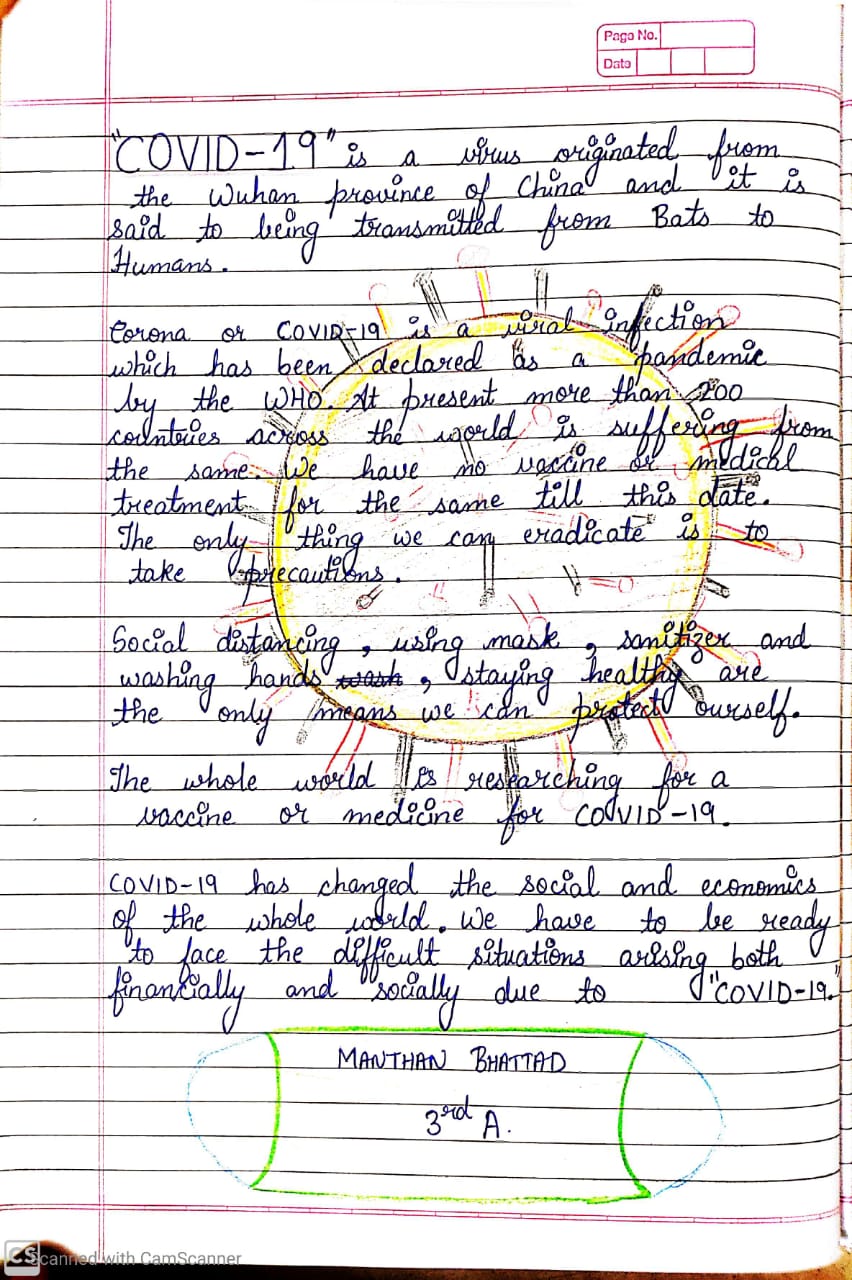 Page No.
Date
"COVID-19" is a virus originated from
the Wuhan province of China and it is
said to being transmitted from Bats to
Humans.
Corona or COVID-19 is a viral infection
which has been declared as a pandemic
by the WHO. At present more than 200
countries across the world is suffering from
the same. We have no vaccine or medical
treatment for the same till this date.
The only thing we can eradicate is to
take precautions.
Social distancing, using mask, sanitizer and
washing hands wash, staying healthy are
the only means we can protect ourself.
The whole world is researching for a
vaccine or medicine for COVID-19.
COVID-19 has changed the social and economics
of the whole world. We have to be ready
to face the difficult situations arising both
financially and socially due to "COVID-19."
MANTHAN BHATTAD
3rd A.
CS Scanned with CamScanner